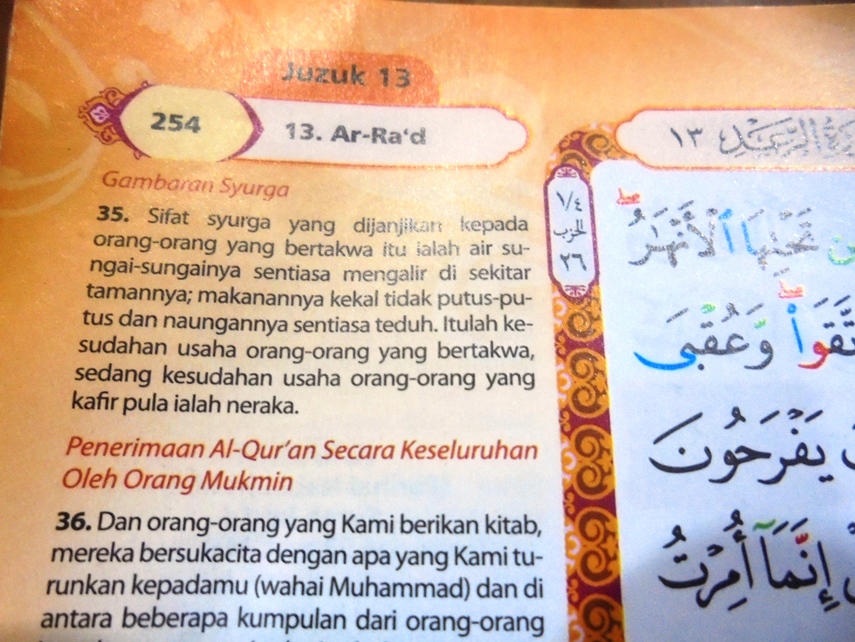 Juzuk 13
254
13. Ar-Ra'd
١٣
Gambaran Syurga
35. Sifat syurga yang dijanjikan kepada
orang-orang yang bertakwa itu ialah air su-
ngai-sungainya sentiasa mengalir di sekitar
tamannya; makanannya kekal tidak putus-pu-
tus dan naungannya sentiasa teduh. Itulah ke-
sudahan usaha orang-orang yang bertakwa,
sedang kesudahan usaha orang-orang yang
kafir pula ialah neraka.
Penerimaan Al-Qur'an Secara Keseluruhan
Oleh Orang Mukmin
36. Dan orang-orang yang Kami berikan kitab,
mereka bersukacita dengan apa yang Kami tu-
runkan kepadamu (wahai Muhammad) dan di
antara beberapa kumpulan dari orang-orang
١/٤
الحزب
٢٦
تَحْتِهَا ٱلْأَنْهَٰرُ
وَّعُقْبَى
يَفْرَحُونَ
إِنَّمَآ أُمِرْتُ